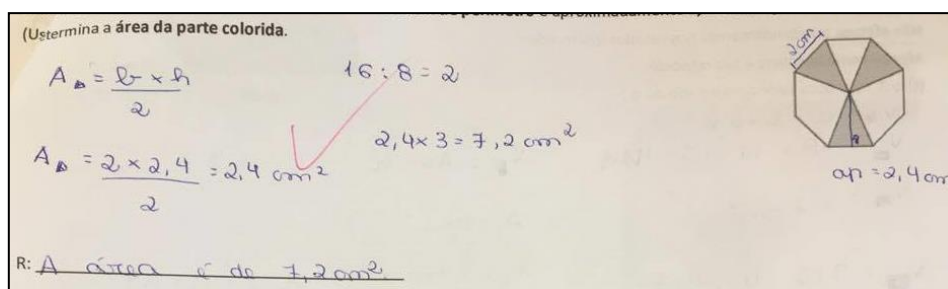 (Determina a área da parte colorida.
A△ = b x h / 2
16 : 8 = 2
2cm
A△ = 2 x 2,4 / 2 = 2,4 cm²
2,4 x 3 = 7,2 cm²
ap = 2,4 cm
R: A área é de 7,2 cm².